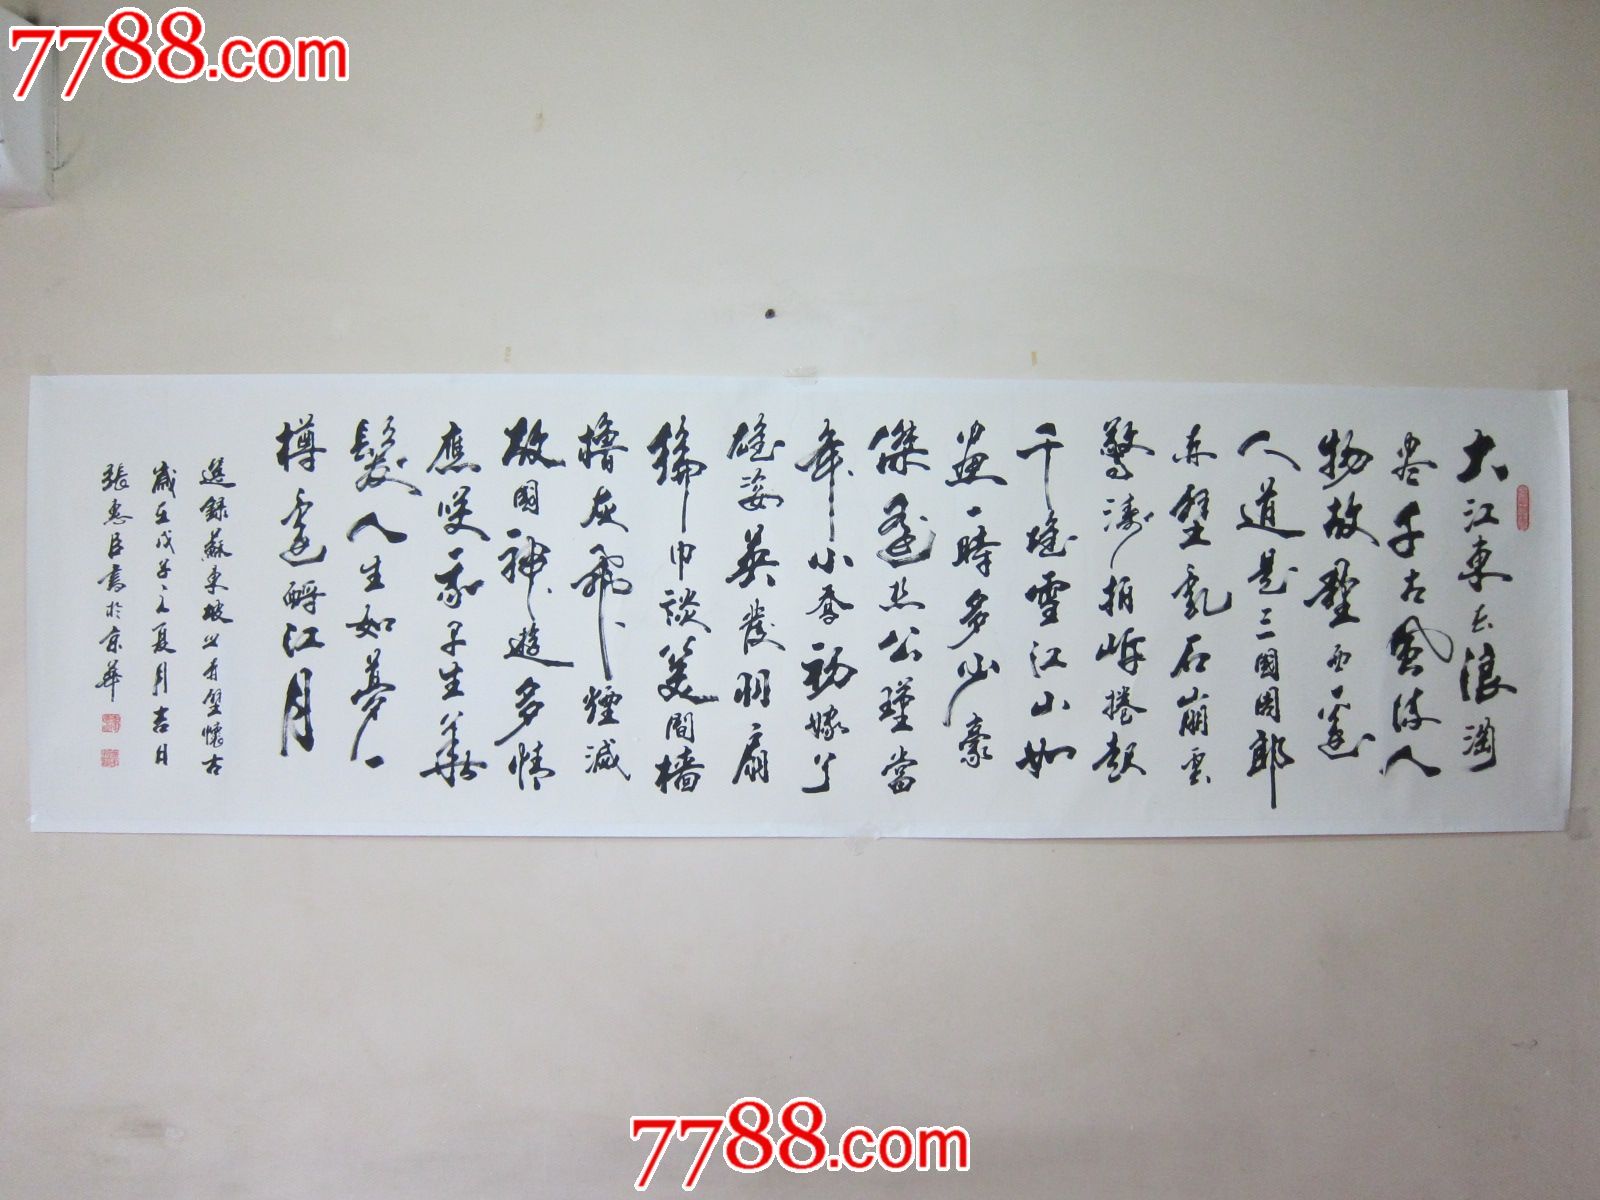 7788.com
大江東去浪淘
尽千古風流人
物故壘西邊
人道是三國周郎
赤壁亂石崩雲
驚濤拍岸捲起
千堆雪江山如
畫一時多少豪
傑遙想公瑾當
年小喬初嫁了
雄姿英發羽扇
綸巾談笑間檣
櫓灰飛煙滅
故國神遊多情
應笑我早生華
髮人生如夢一
樽還酹江月
選錄蘇東坡之赤壁懷古
歲在戊子之夏月吉日
張惠臣書於京華
7788.com